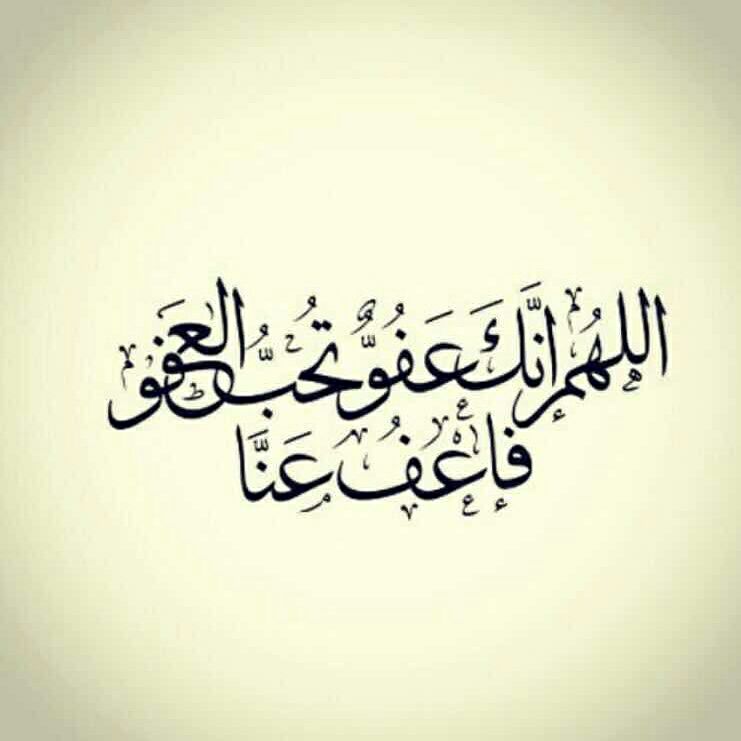 اللهُم انَّكَ عَفُوٌّ تُحبُّ العَفو
فاعْفُ عَنَّا